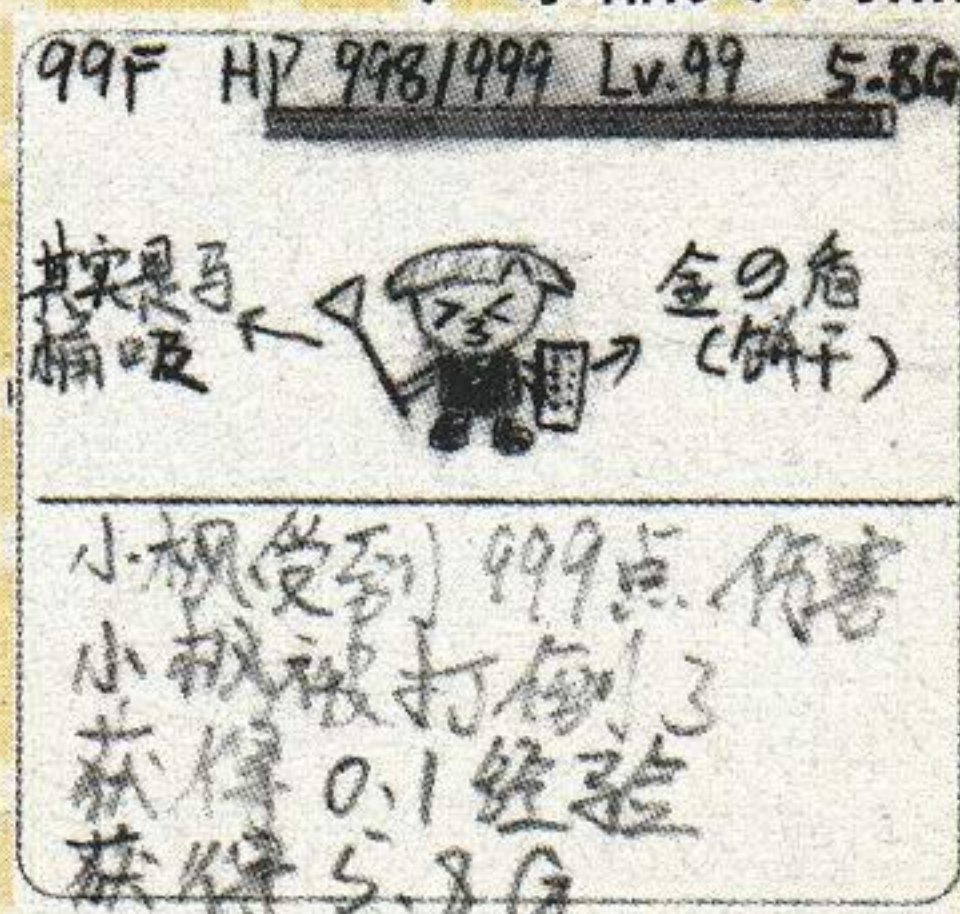 99F HP 998/999 Lv.99 5.8G
其实是马
桶吸
金の盾
(饼干)
小枫受到999点伤害
小枫被打倒了
获得0.1经验
获得5.8G